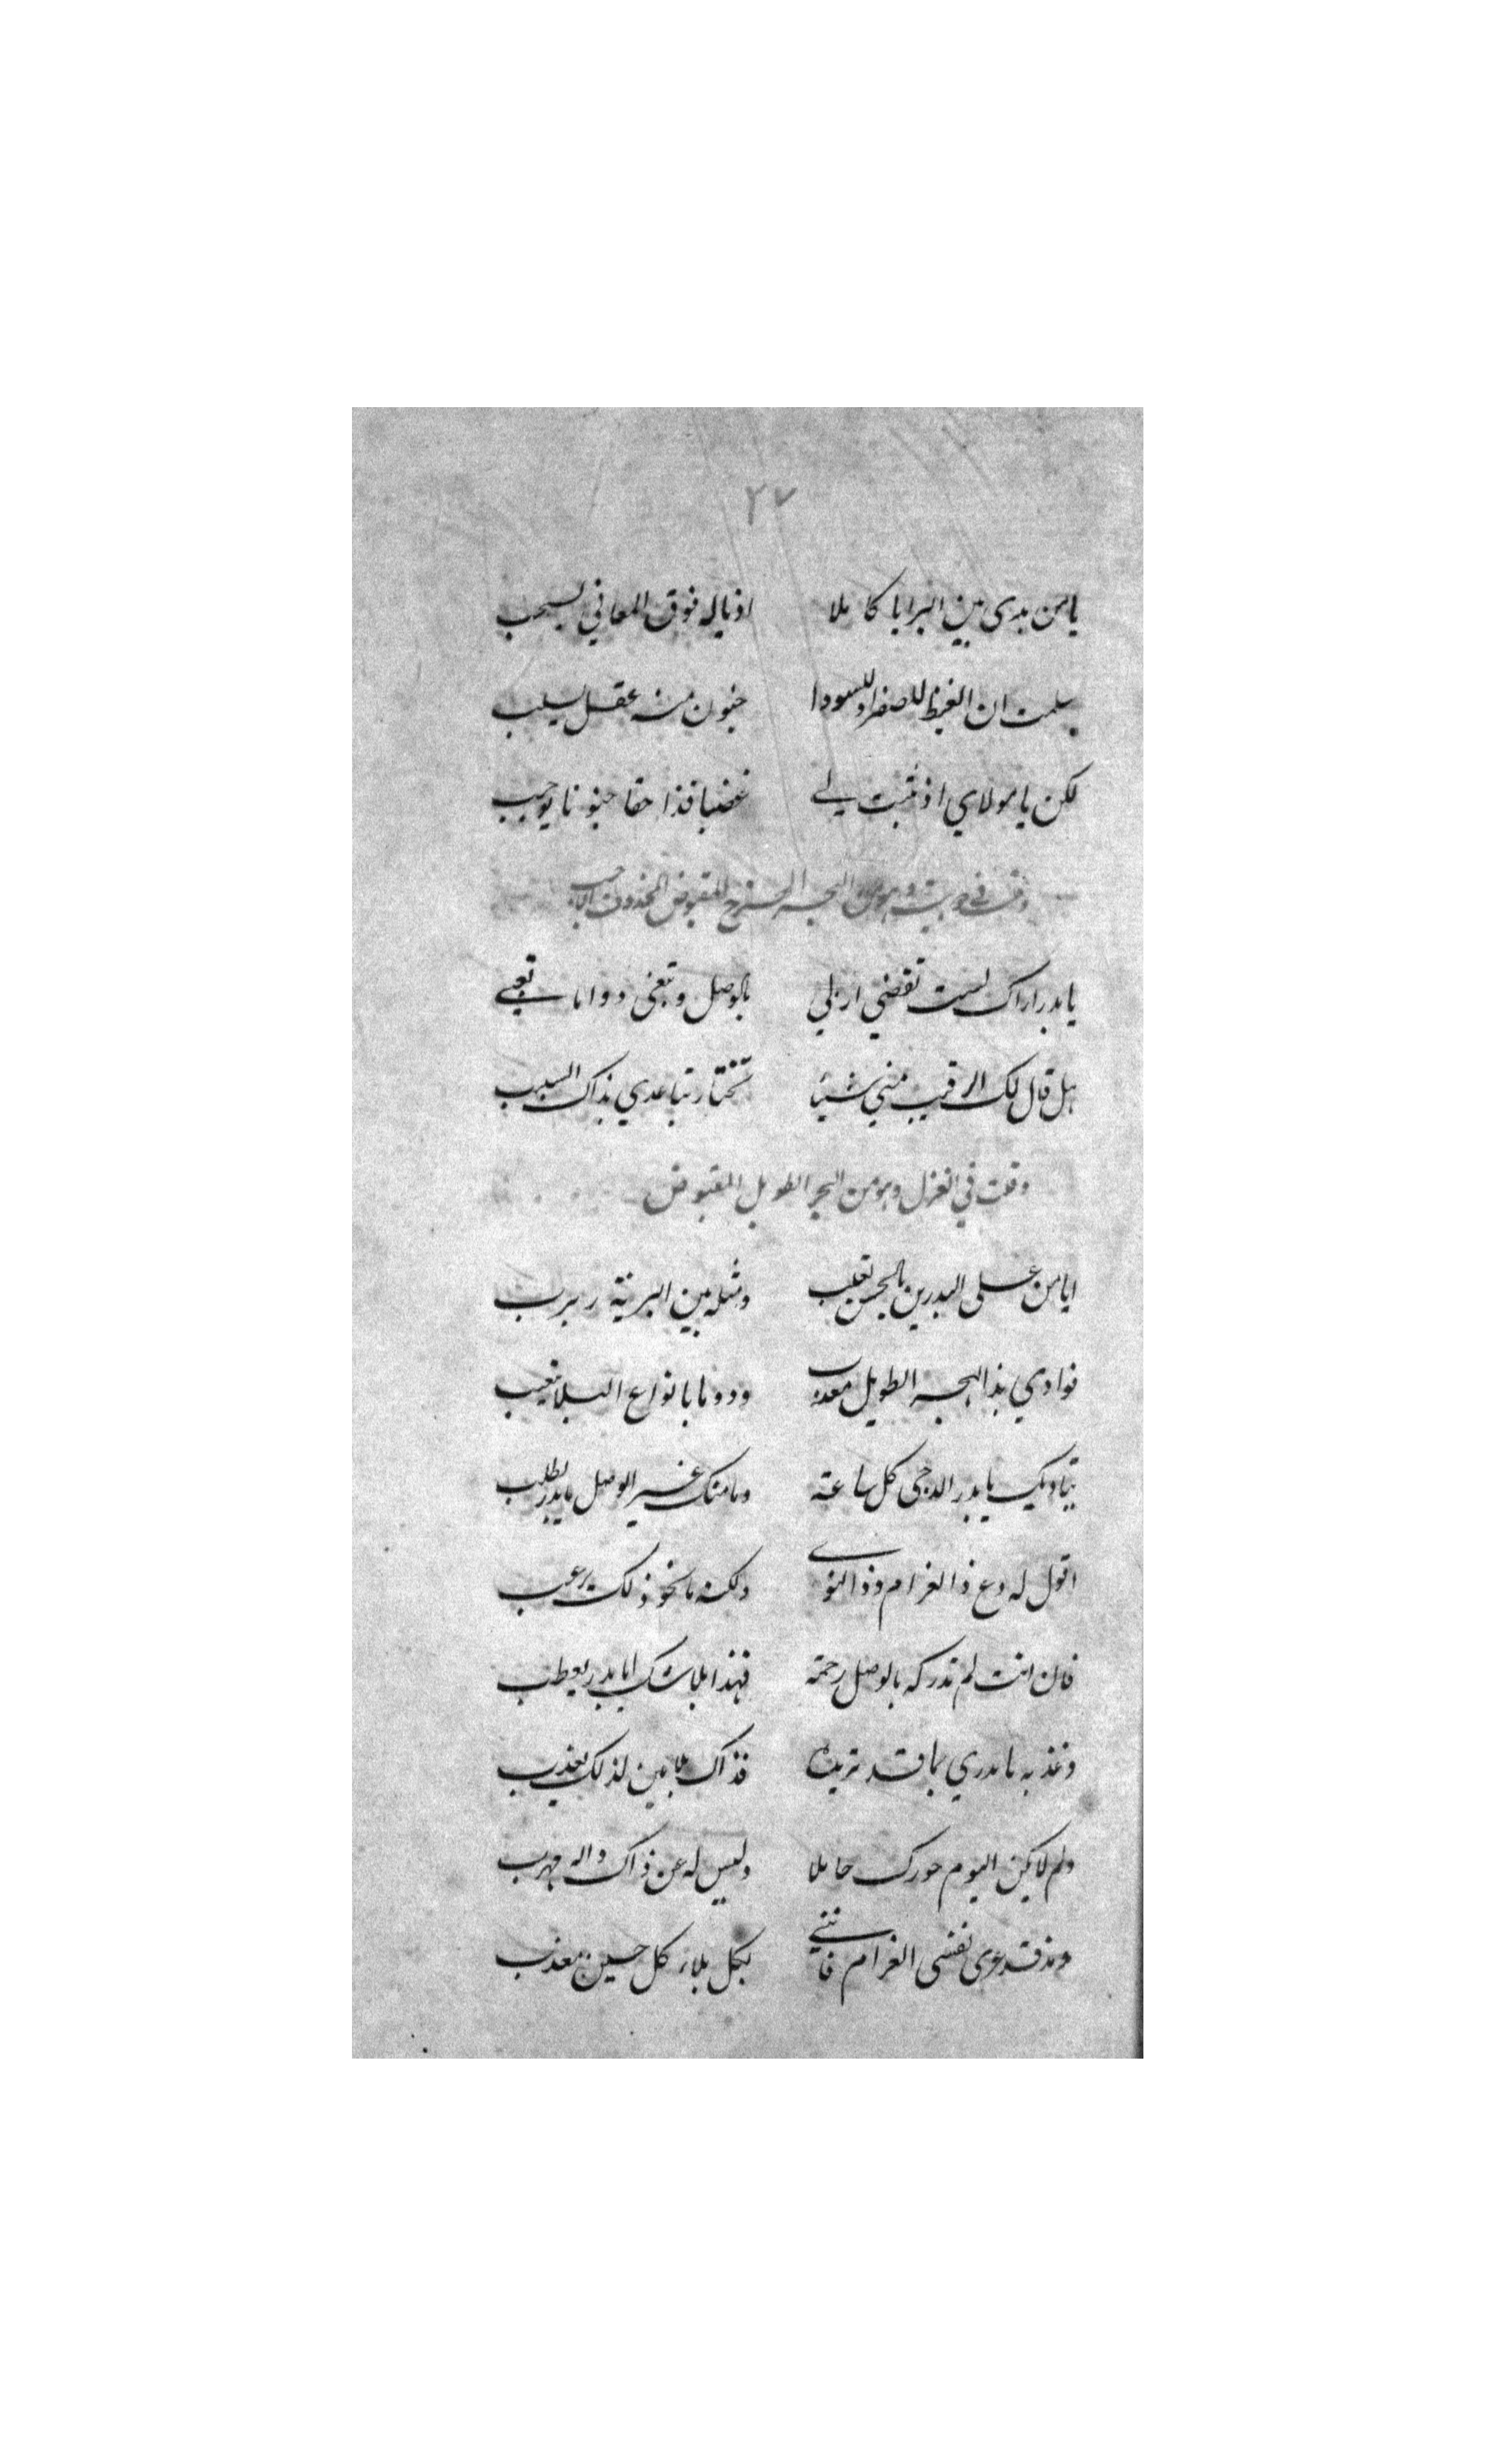 ٢٧
يا من بدى بين البرايا كاملا اذياله فوق المعاني يسحب
سلمت ان الغيظ للصفرا وللسودا جنون منه عقل يسلب
لكن يا مولاي اذ تثبت لي غضبا فذا حقا جنونا يوجب
وقلت في دوبيت وهو من البحر الهزج المقبوض المحذوف
يا بدر اراك لست تقضي اربي بالوصل وتبغي دواما تعبي
هل قال لك الرقيب مني شيئا تختار تباعدي بذاك السبب
وقلت في الغزل وهو من البحر الطويل المقبوض
ايا من على البدرين بالحسن تغلب ومثله بين البرية ربرب
فوادي بذا الهجر الطويل معذب ودوما بانواع البلا يتعب
يناديك يا بدر الدجى كل ساعة وما منك غير الوصل يا بدر يطلب
اقول له دع ذا الغرام وذا النوى ولكنه ما نحو ذلك يرغب
فان انت لم تدركه بالوصل رحمة فهذا بلا شك ايا بدر يعطب
وعذبه يا بدري بما قد تريد فذاك بلا مين لذلك يعذب
ولم لا يكن اليوم جورك حاملا وليس له عن ذاك والله مهرب
ومذ قد عرى نفسي الغرام فانني بكل بلاء كل حين معذب